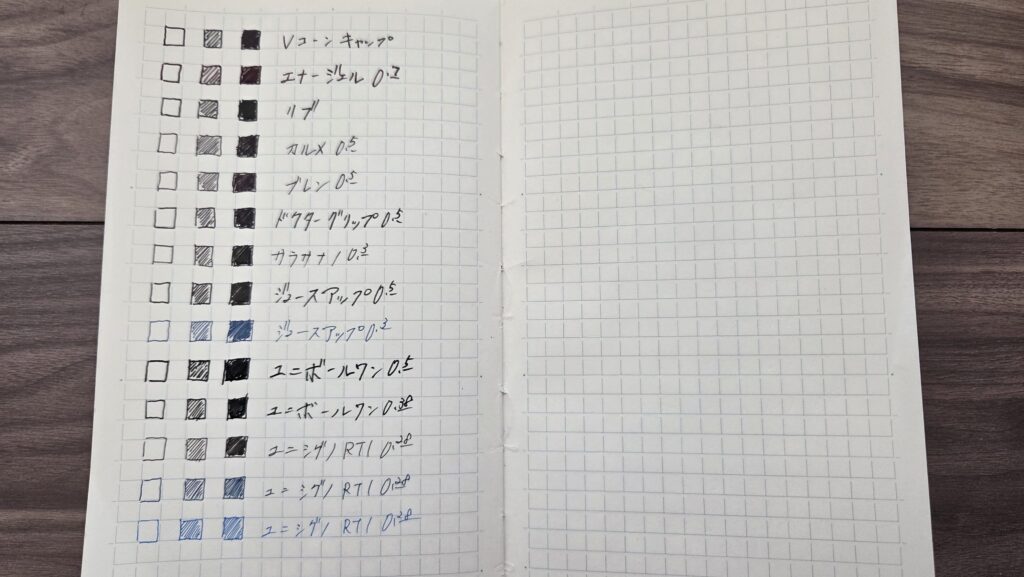 Vコーンキャップ
エナージェル 0.7
リブ
カルメ 0.5
ブレン 0.5
ドクターグリップ 0.5
サラサナノ 0.3
ジュースアップ 0.5
ジュースアップ 0.3
ユニボールワン 0.5
ユニボールワン 0.38
ユニシグノ RT1 0.38
ユニシグノ RT1 0.38
ユニシグノ RT1 0.38